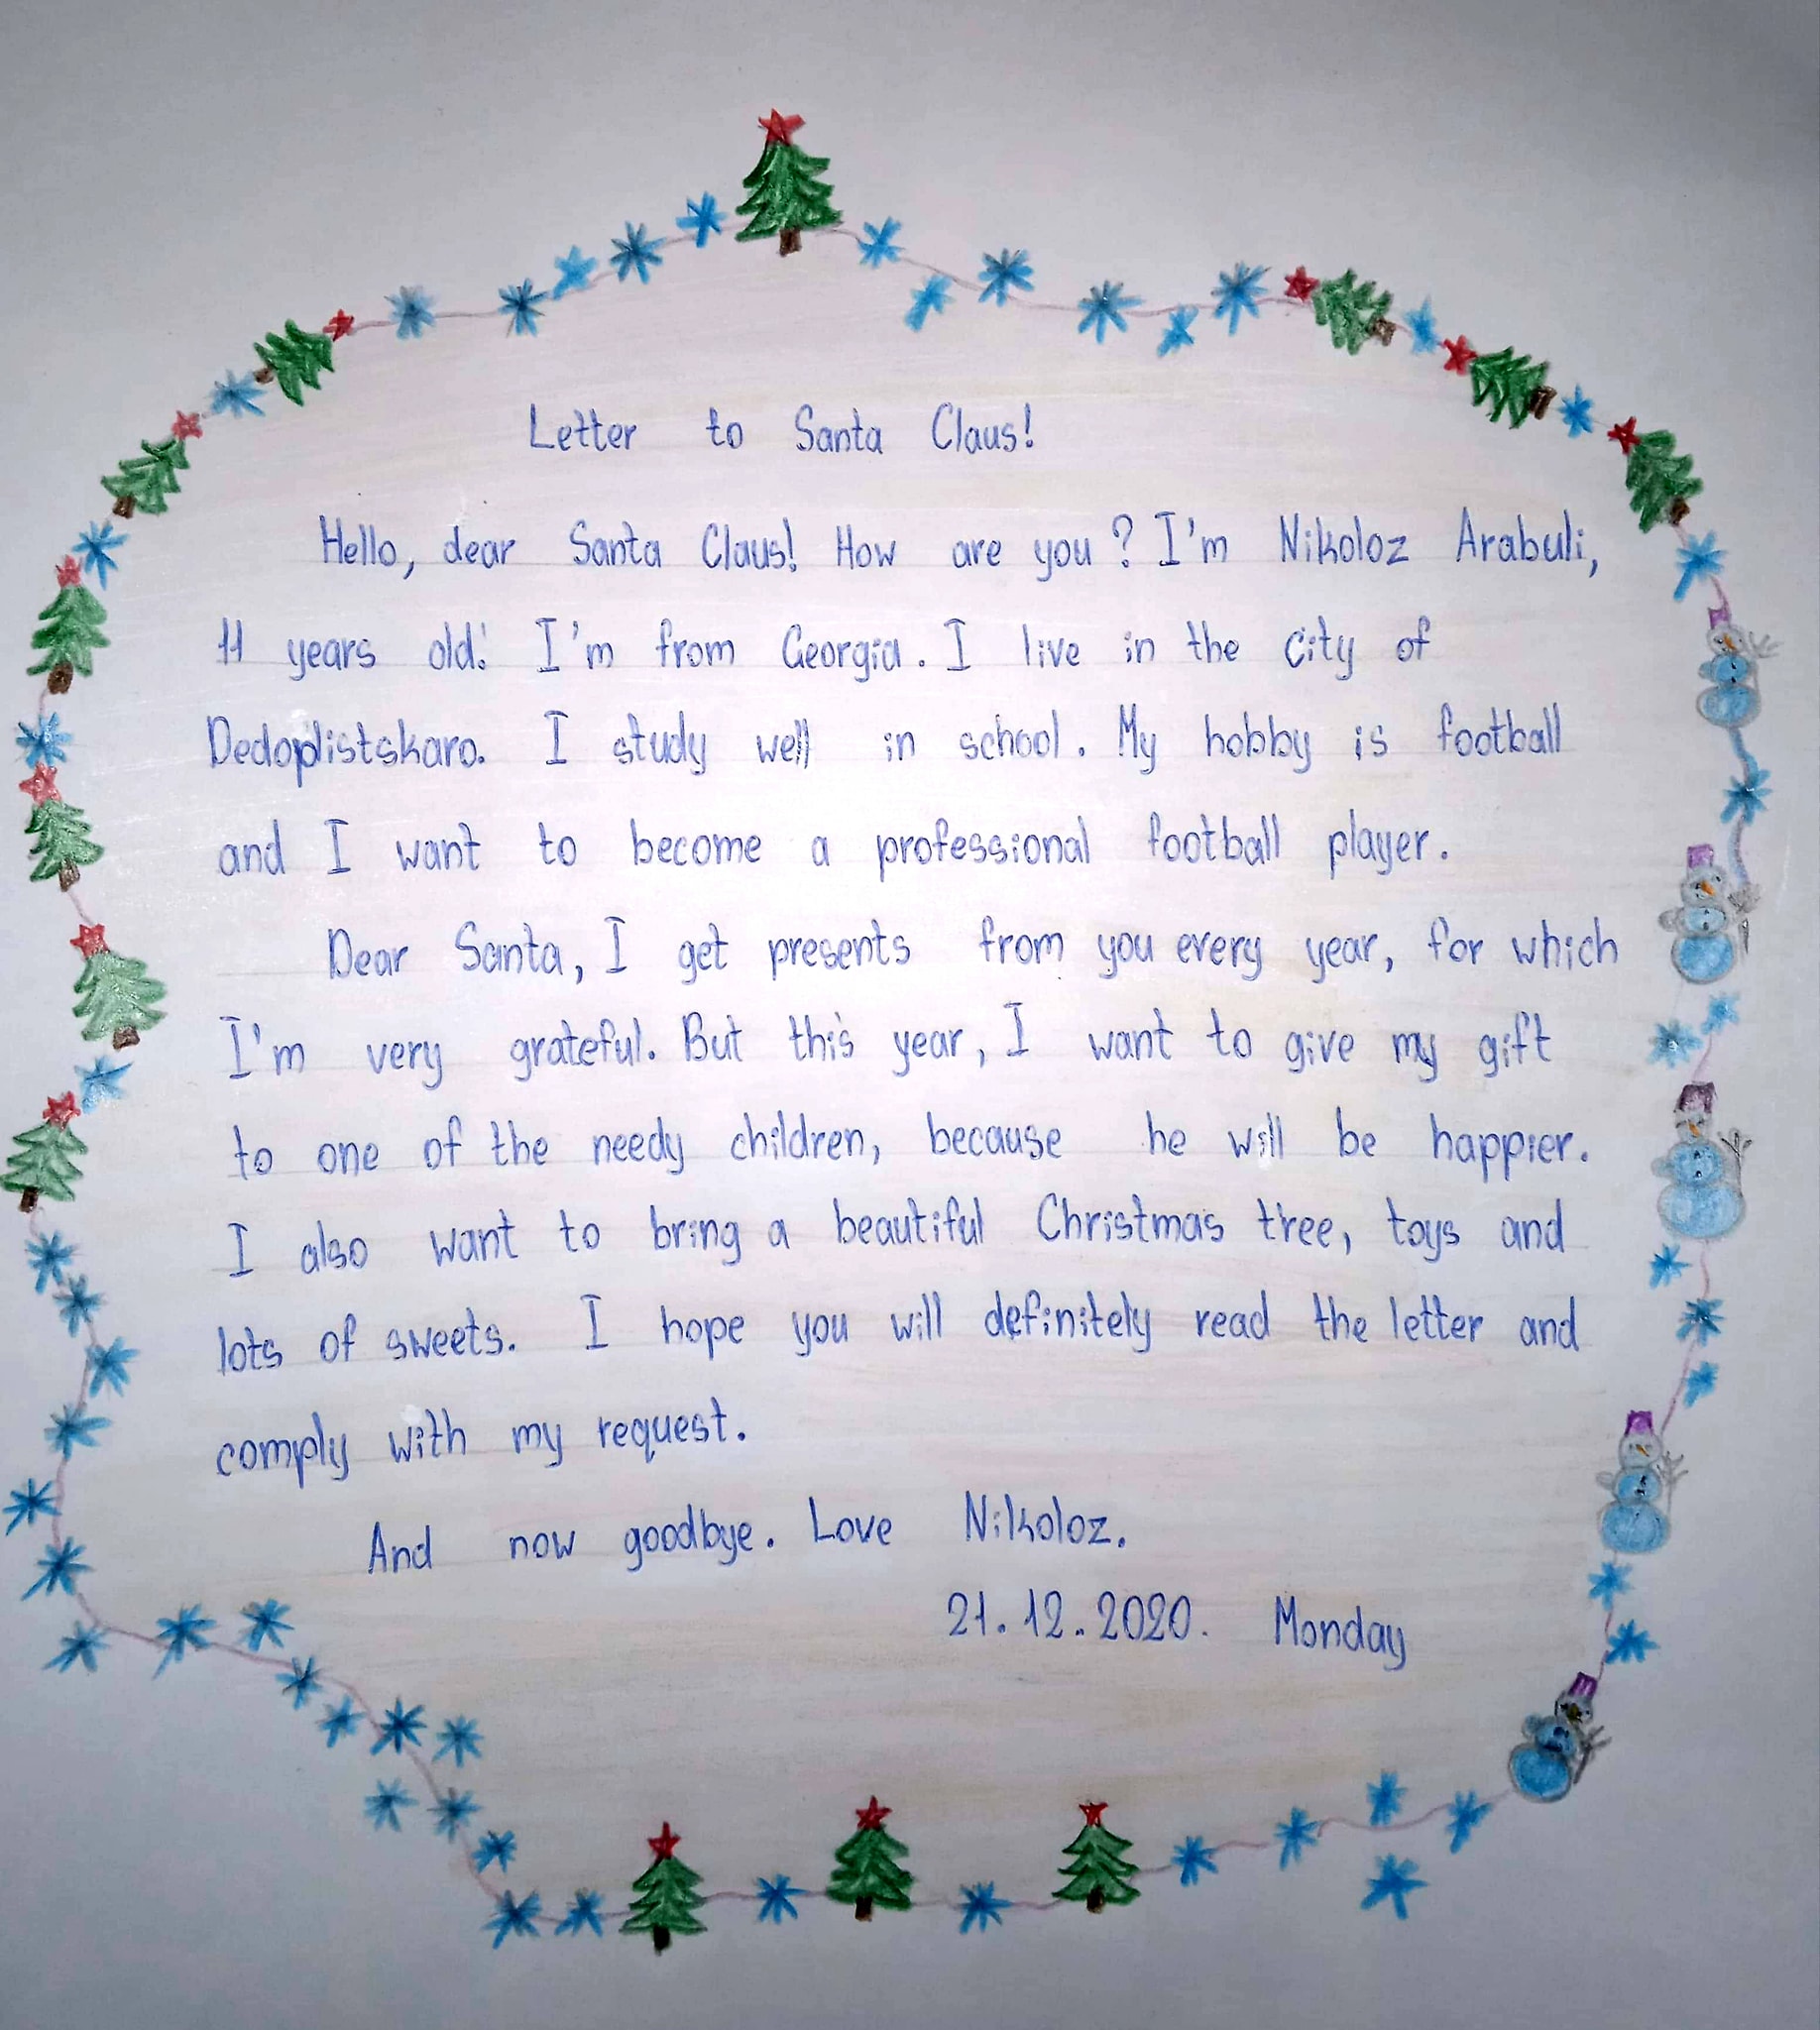 Letter to Santa Claus!
Hello, dear Santa Claus! How are you? I'm Nikoloz Arabuli,
11 years old. I'm from Georgia. I live in the city of
Dedoplistskaro. I study well in school. My hobby is football
and I want to become a professional football player.
Dear Santa, I get presents from you every year, for which
I'm very grateful. But this year, I want to give my gift
to one of the needy children, because he will be happier.
I also want to bring a beautiful Christmas tree, toys and
lots of sweets. I hope you will definitely read the letter and
comply with my request.
And now goodbye. Love Nikoloz.
21.12.2020. Monday